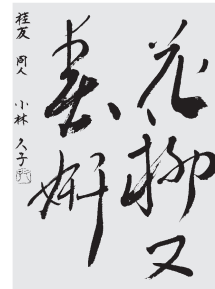 花柳又
春妍
桂友 同人 小林 久子